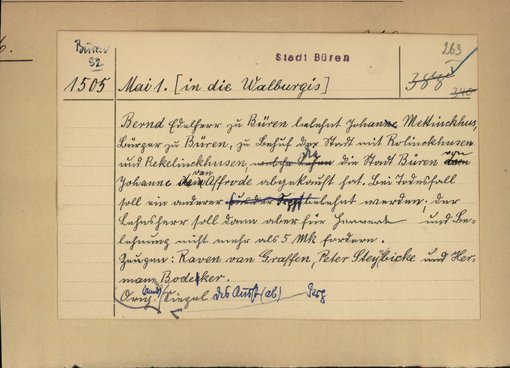 Büren
82
Stadt Büren
263
388
340
1505
Mai 1. [in die Walburgis]
Bernd Edelherr zu Büren belehnt Johann Mettinckhus,
Bürger zu Büren, zu Behuf der Stadt mit Rolinckhusen
und Rekelinckhusen, welche die die Stadt Büren von
Johanne von Affrode abgekauft hat. Bei Todesfall
soll ein anderer belehnt werden. der
Lehnsherr soll dann aber für Herwede und Be-
lehnung nicht mehr als 5 Mk fordern.
Zeugen: Raven van Graffen, Peter und Her-
mann Bodeker.
Orig. Siegel des Ausst (ab) Perg